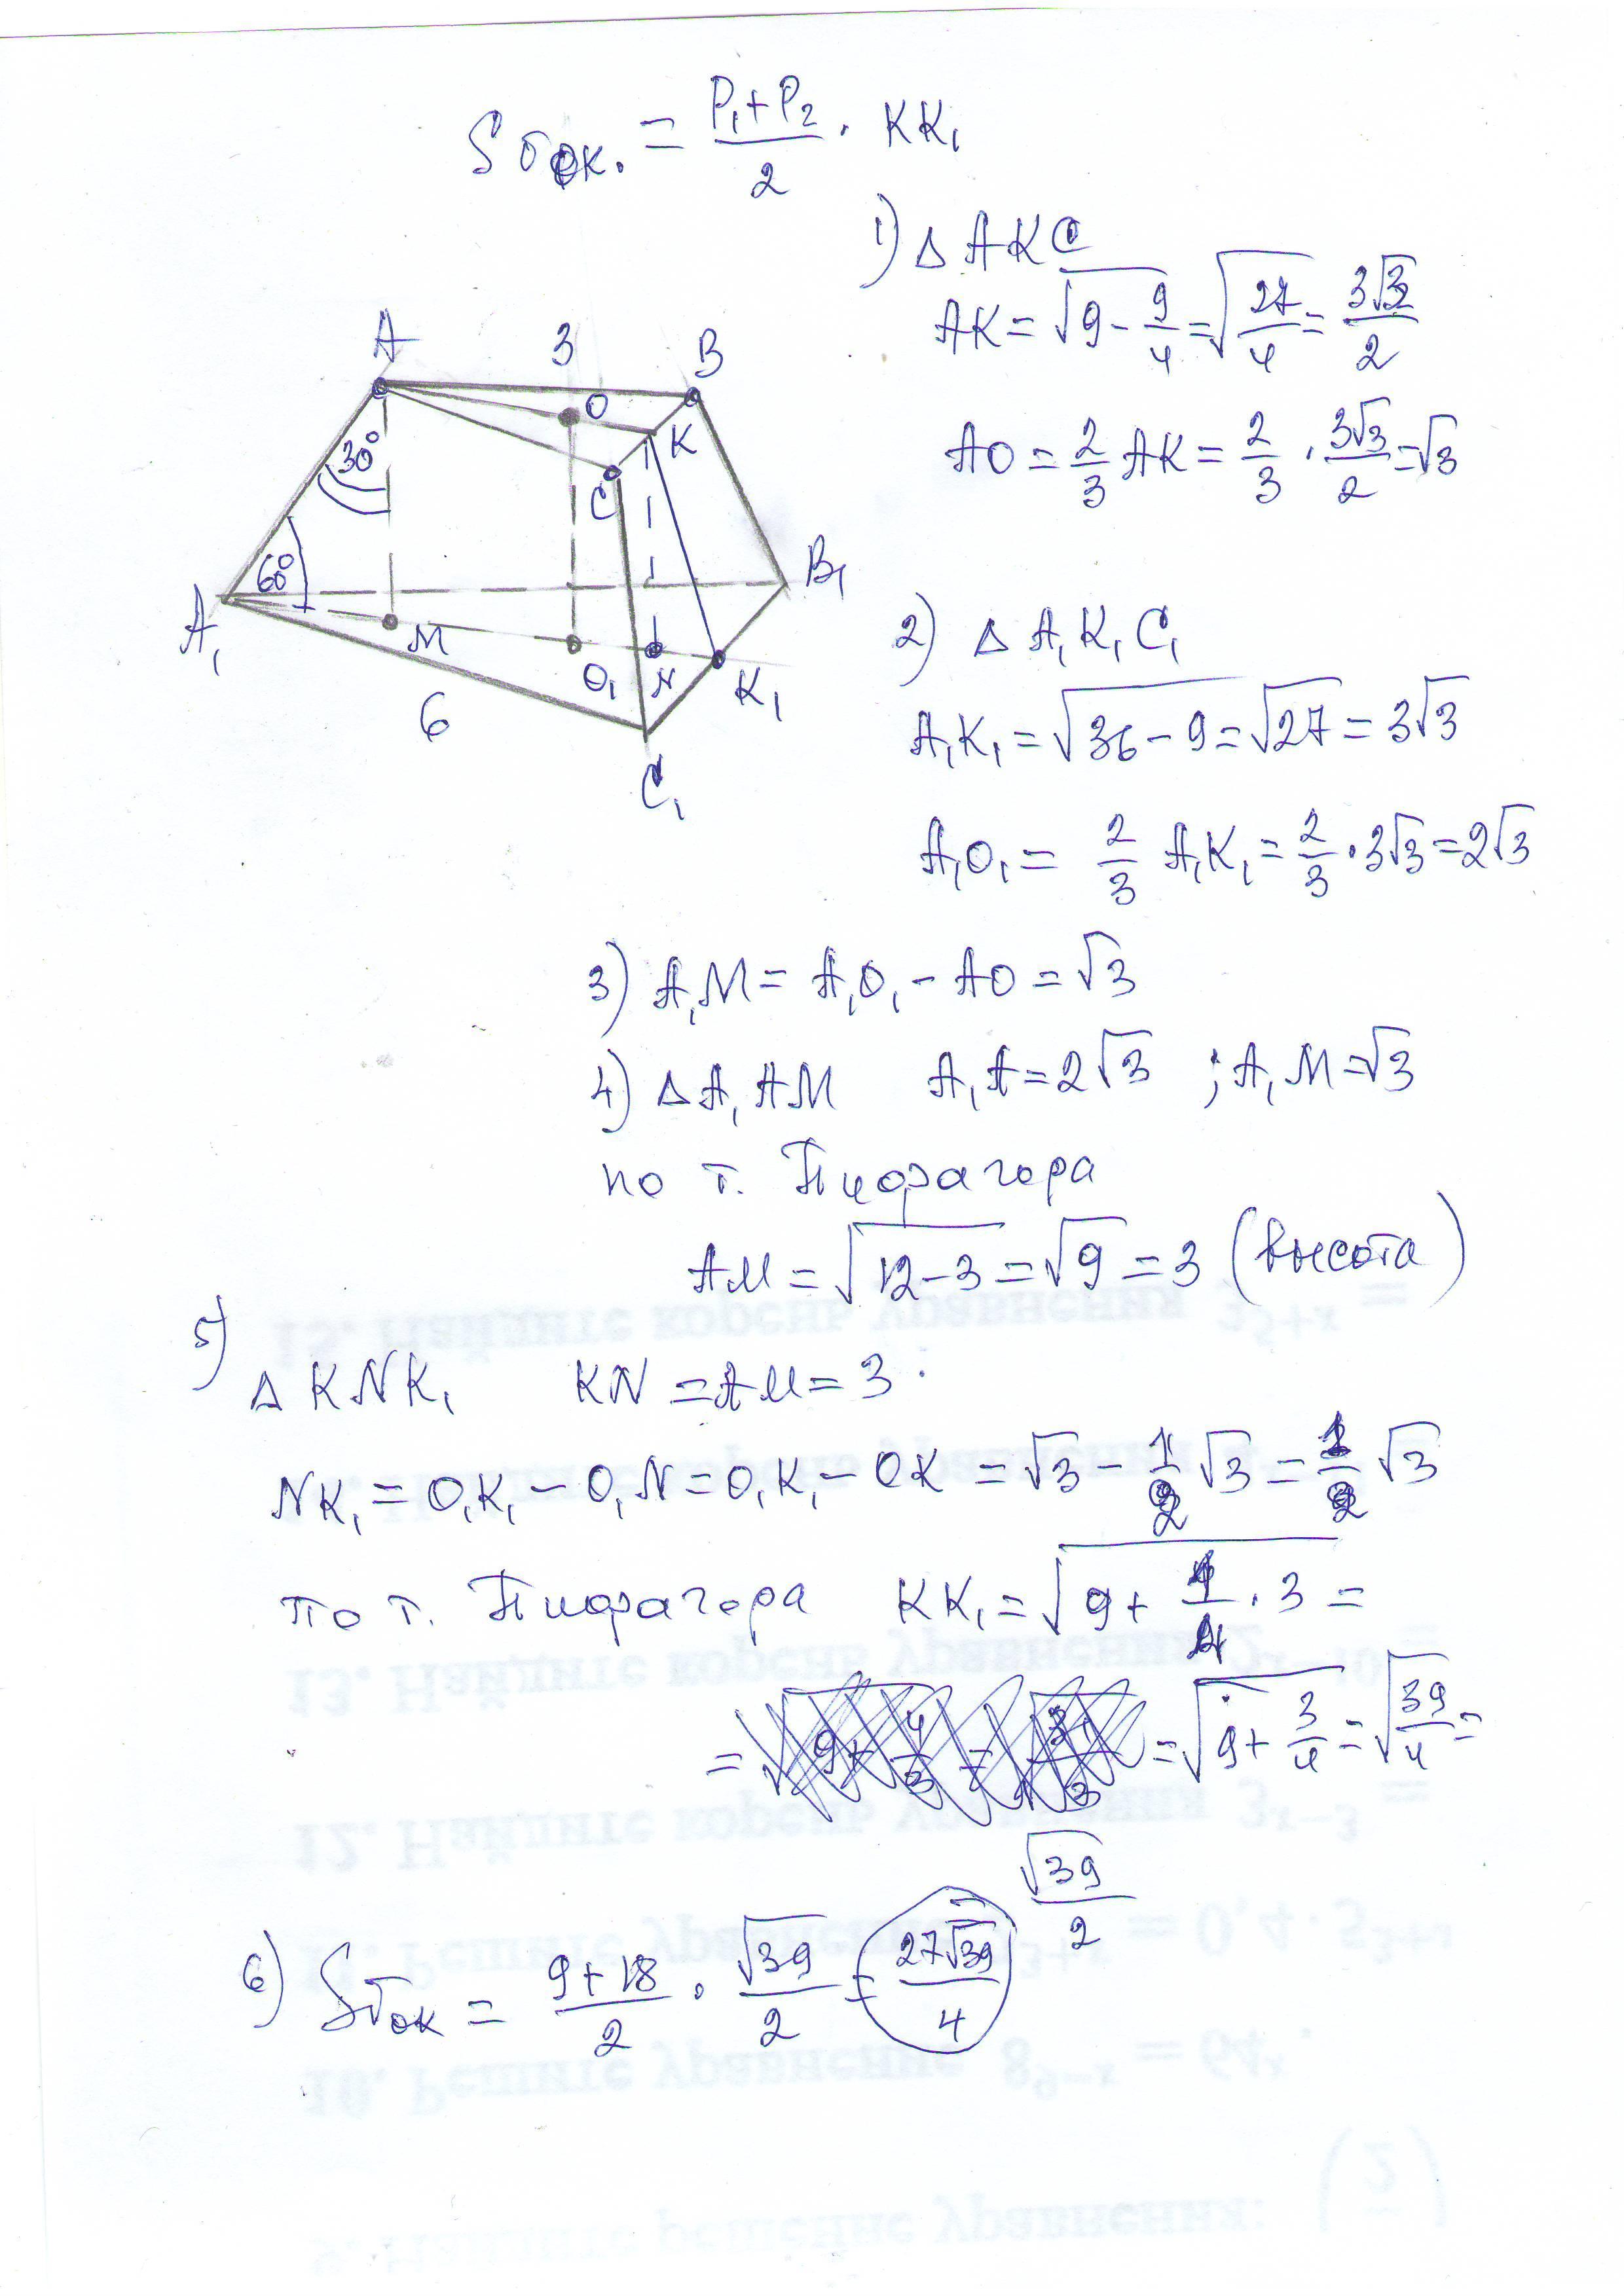 Sбок. = (P₁+P₂)/2 · KK₁
1) Δ AKC
AK = √(9 - 9/4) = √(27/4) = 3√3/2
AO = 2/3 AK = 2/3 · 3√3/2 = √3
A 3 B
O
K
30°
C
60°
B₁
A₁
M
O₁ N K₁
6
C₁
2) Δ A₁K₁C₁
A₁K₁ = √(36-9) = √27 = 3√3
A₁O₁ = 2/3 A₁K₁ = 2/3 · 3√3 = 2√3
3) A₁M = A₁O₁ - AO = √3
4) Δ A₁AM A₁A = 2√3 ; A₁M = √3
по т. Пифагора
AM = √(12-3) = √9 = 3 (высота)
5)
Δ KNK₁ KN = AM = 3.
NK₁ = O₁K₁ - O₁N = O₁K₁ - OK = √3 - 1/2 √3 = 1/2 √3
по т. Пифагора KK₁ = √(9 + 1/4 · 3) =
= √(9 + 3/4) = √(39/4) =
= √39/2
6) Sбок = (9+18)/2 · √39/2 = 27√39/4